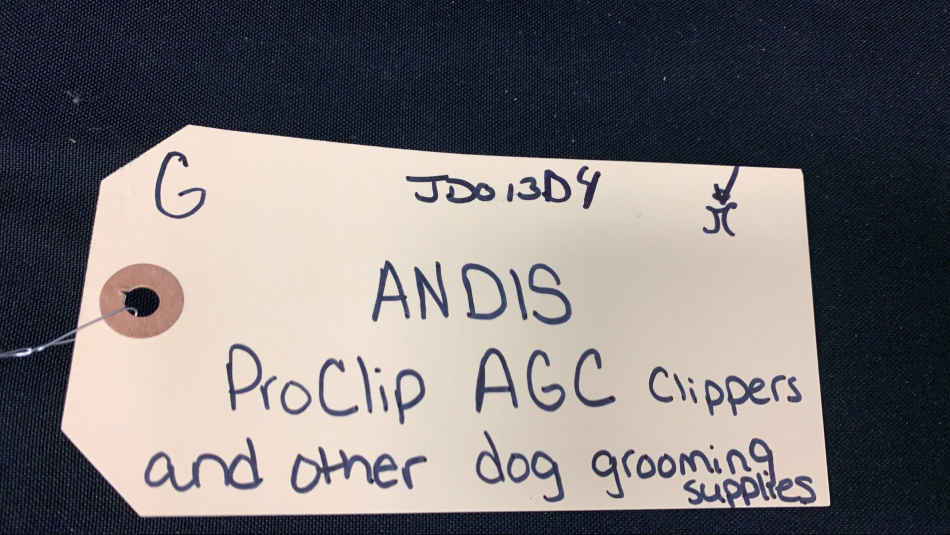 G JD013D4
ANDIS
ProClip AGC Clippers
and other dog grooming
supplies